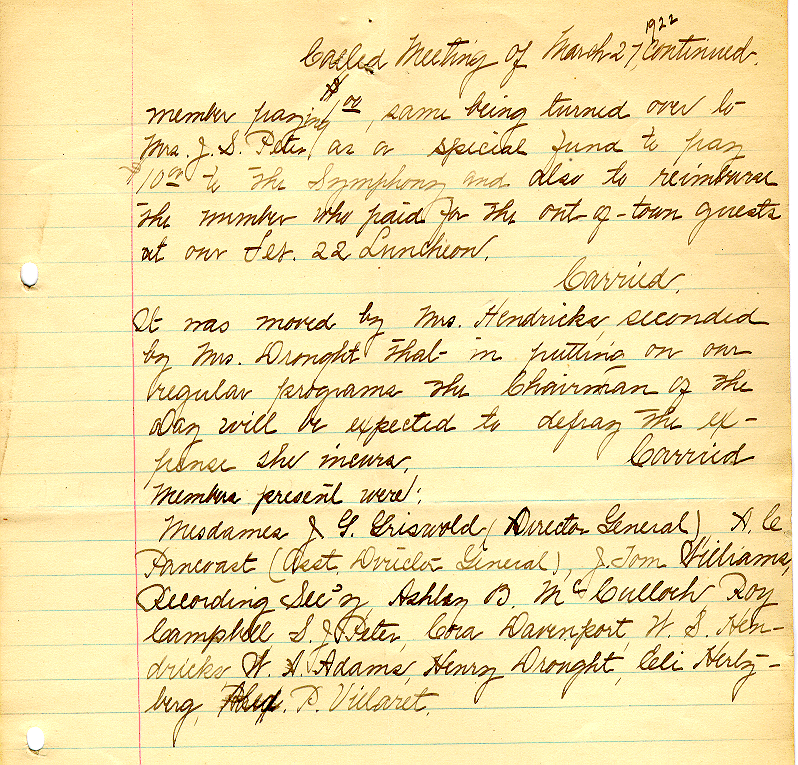 1922
Called Meeting of March 27, continued.
member paying $1.00, same being turned over to
Mrs. J. S. Peter, as a special fund to pay
$10.00 to the Symphony and also to reimburse
the member who paid for the out-of-town guests
at our Feb. 22 Luncheon.
Carried.
It was moved by Mrs. Hendricks, seconded
by Mrs. Drought that in putting on our
regular programs the Chairman of the
Day will be expected to defray the ex-
pense she incurs. Carried
Members present were:
Mesdames J. G. Griswold (Director General), A. C.
Pancoast (Asst. Director General), J. Tom Williams,
Recording Sec'y, Ashley B. McCulloch Roy
Campbell S. J. Peter, Cora Davenport, W. S. Hen-
dricks W. A. Adams, Henry Drought, Eli Hertz-
berg, P. Villaret.